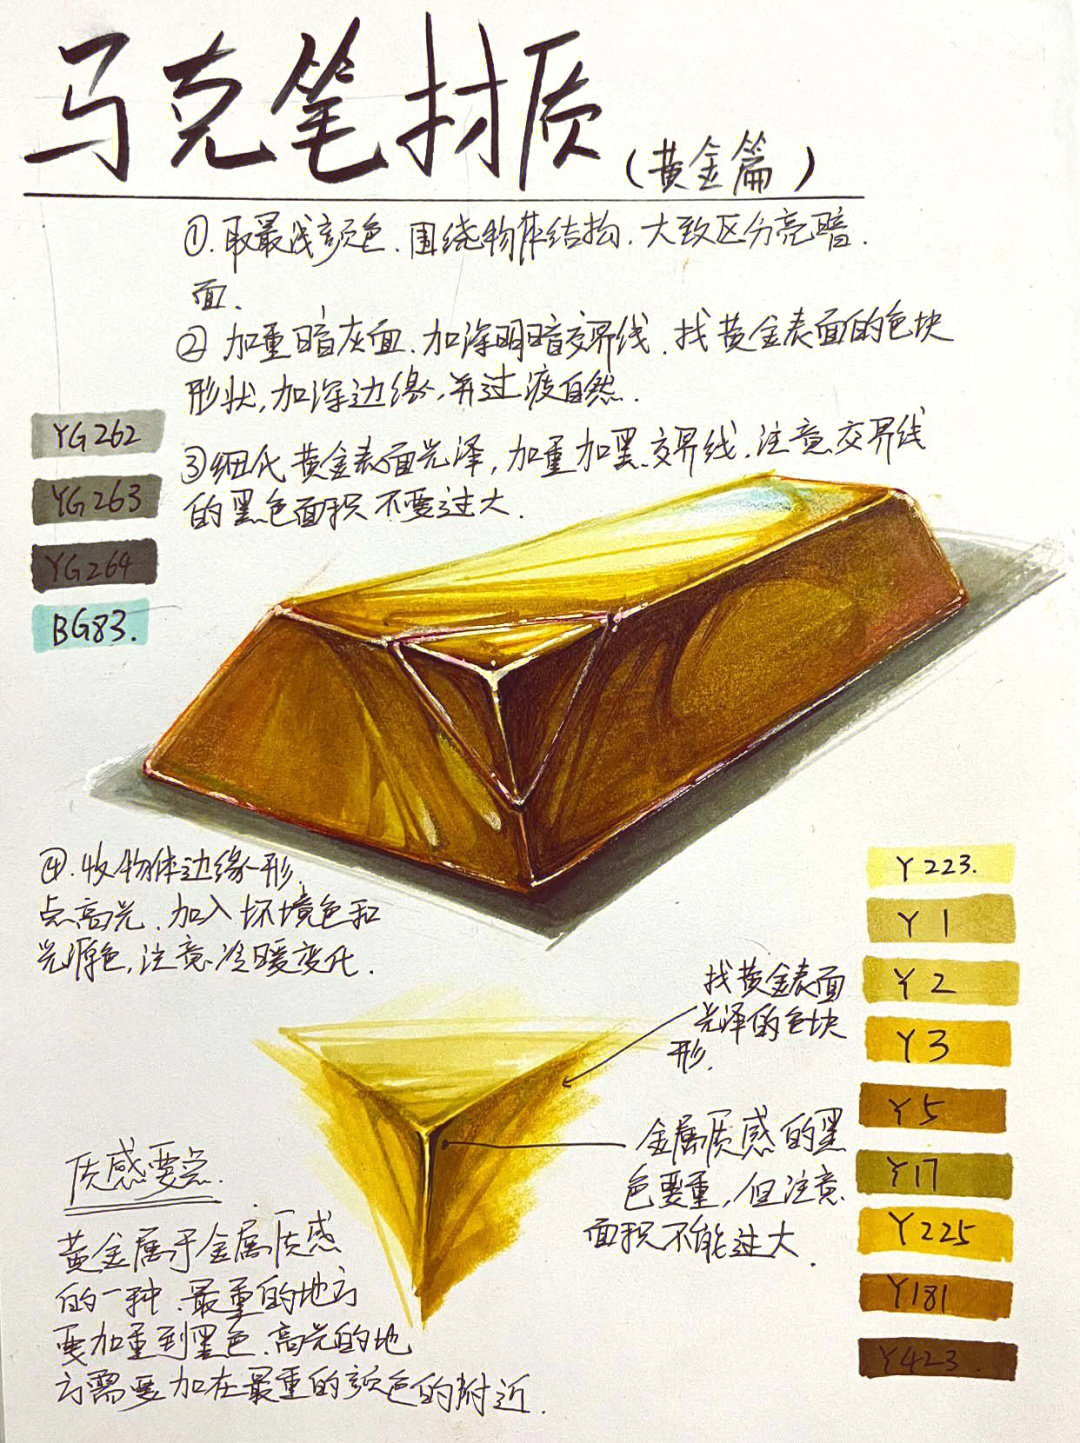 马克笔材质
(黄金篇)
①.取最浅颜色.围绕物体结构.大致区分亮暗.
面.
②加重暗灰面.加深明暗交界线.找黄金表面的色块
形状,加深边缘,并过渡自然.
③细化黄金表面光泽,加重加黑交界线.注意交界线
的黑色面积不要过大.
YG262
YG263
YG264
BG83.
④.收物体边缘形.
点高光.加入环境色和
光源色,注意冷暖变化.
Y223.
Y1
Y2
Y3
Y5
Y17
Y225
Y181
Y423.
找黄金表面
光泽的色块
形.
金属质感的黑
色要重,但注意
面积不能过大.
质感要点.
黄金属于金属质感
的一种.最重的地方
要加重到黑色.高光的地
方需要加在最重的颜色的附近.